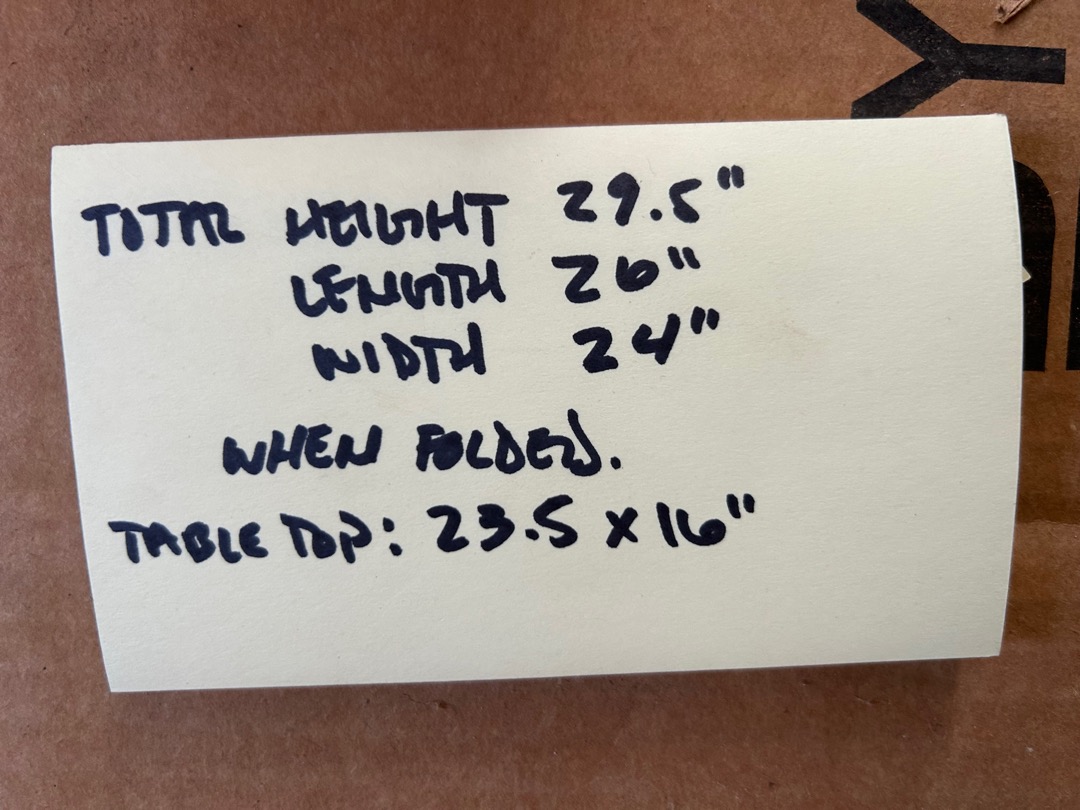 TOTAL HEIGHT 29.5"
LENGTH 26"
WIDTH 24"
WHEN FOLDED.
TABLE TOP: 23.5 x 16"